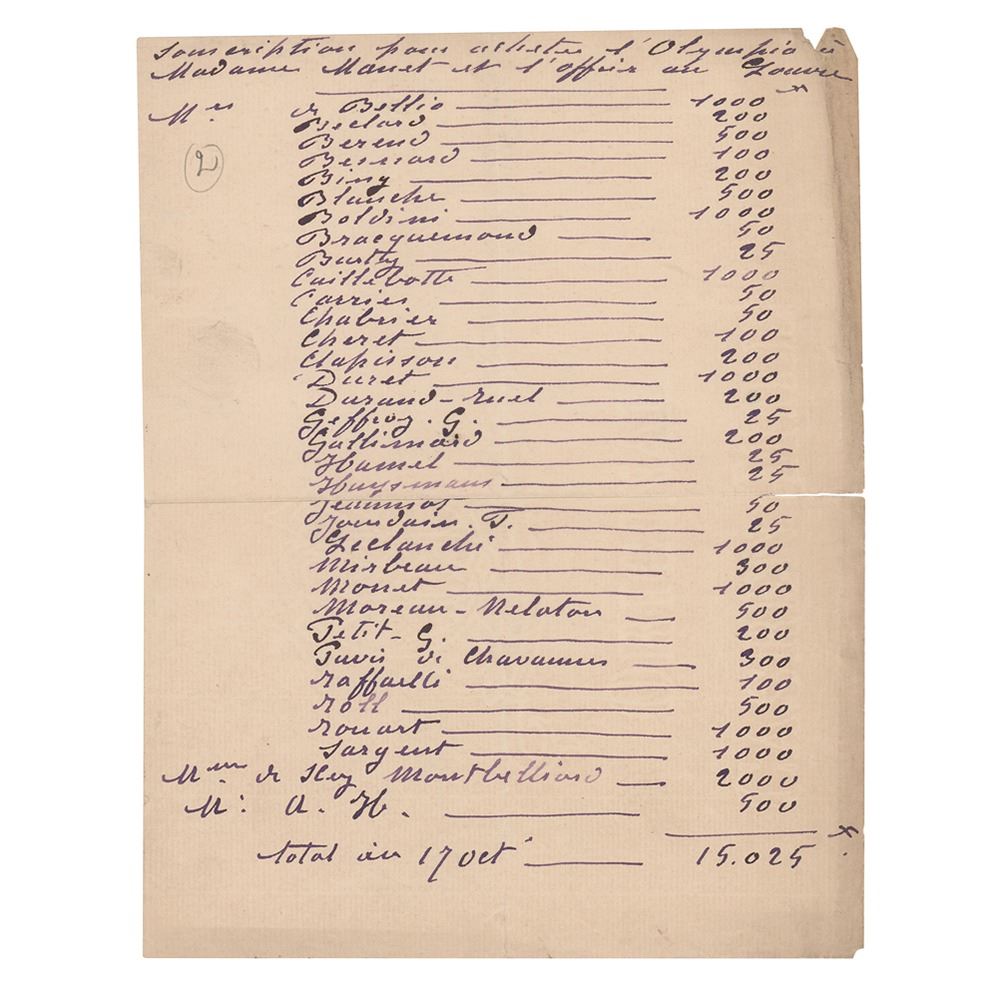 Souscription pour acheter l'Olympia à
Madame Manet et l'offrir au Louvre
Mrs de Bellio 1000
Beclard 200
Berend 500
Besnard 100
Bing 200
Blanche 500
Boldini 1000
Bracquemond 50
Burty 25
Caillebotte 1000
Carries 50
Chabrier 50
Cheret 100
Clapisson 200
Duret 1000
Durand-ruel 200
Geffroy. G. 25
Gallimard 200
Hamel 25
Huysmans 25
Jeanniot 50
Jourdain. F. 25
Leclanché 1000
Mirbeau 300
Monet 1000
Moreau-Nelaton 500
Petit-G. 200
Puvis de Chavannes 300
Raffaelli 100
Roll 500
Rouart 1000
Sargent 1000
Mme de Scey Montbelliard 2000
Mr. A. H. 500
total au 17 oct 15.025
2